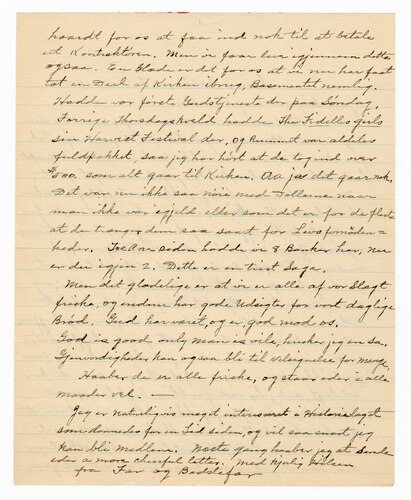 haardt for os at faa ind nok til at betale
et Kontraktören. Men vi faar leve igjennem dette
ogsaa. En Glæde er det for os at vi nu har faat
tat en Deel af Kirken ibrug, Basementet nemlig.
Hadde vor förste Gudstjeneste der paa Söndag.
Forrige Thorsdagskveld hadde The Fidelles girls
sin Harvest Festival der, og Rummet var aldeles
fuldpakket, saa jeg har hört at de tog ind over
$500. som alt gaar til Kirken. Aa ja det gaar nok.
Det var nu ikke saa nöie med Dollarne naar
man ikke var gjeld eller som det er for de fleste
at de trænger dem saa saart for Livsfornöden=
heder. Ti Aar siden hadde vi 8 Banker her, nu
er der igjen 2. Dette er en trist Saga.
Men det glædelige er at vi er alle af vor Slagt
friske, og endnu har gode Udsigter for vort daglige
Bröd. Gud har været, og er god mod os.
God is good only man is vile, husker jeg en sa.
Gjenvordigheder kan ogsaa bli til velsignelse for mange.
Haaber de er alle friske, og staar eder i alle
maader vel. —
Jeg er naturligvis meget intresseret i Historielaget
som dannedes for en Tid siden, og vil saa snart jeg
kan bli medlem. Næste gang haaber jeg at sende
eder a more cheerful letter. Med kjærlig Hilsen
fra Far og Bedstefar